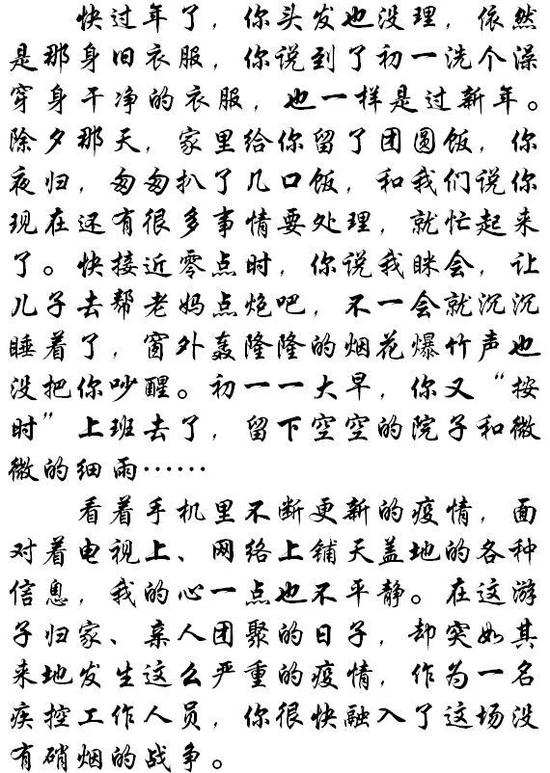 快过年了，你头发也没理，依然
是那身旧衣服，你说到了初一洗个澡
穿身干净的衣服，也一样是过新年。
除夕那天，家里给你留了团圆饭，你
夜归，匆匆扒了几口饭，和我们说你
现在还有很多事情要处理，就忙起来
了。快接近零点时，你说我眯会，让
儿子去帮老妈点炮吧，不一会就沉沉
睡着了，窗外轰隆隆的烟花爆竹声也
没把你吵醒。初一一大早，你又“按
时”上班去了，留下空空的院子和微
微的细雨……
看着手机里不断更新的疫情，面
对着电视上、网络上铺天盖地的各种
信息，我的心一点也不平静。在这游
子归家、亲人团聚的日子，却突如其
来地发生这么严重的疫情，作为一名
疾控工作人员，你很快融入了这场没
有硝烟的战争。